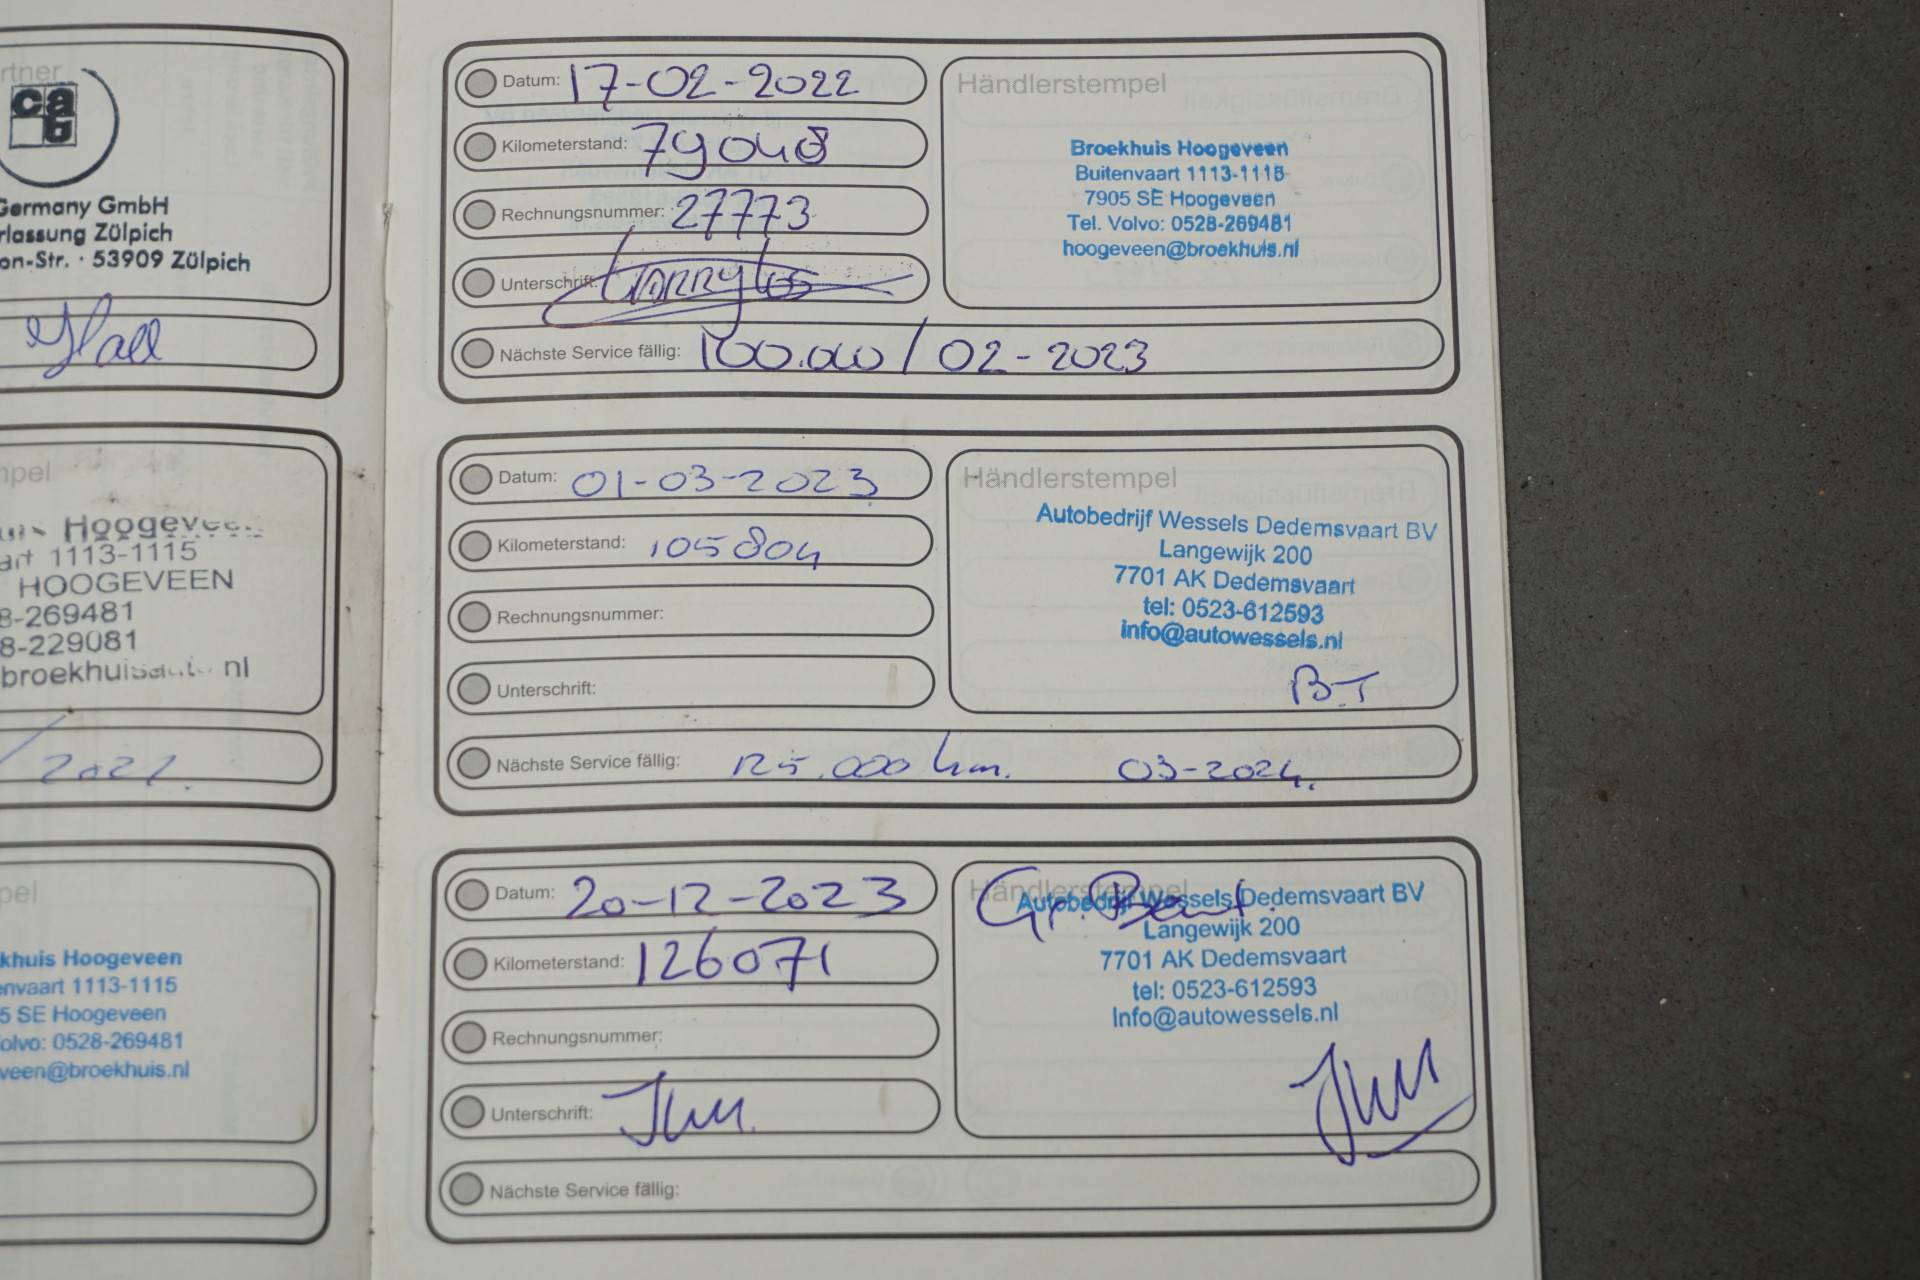 rtner
ca
b
Germany GmbH
rlassung Zülpich
on-Str. · 53909 Zülpich
Hall
mpel
Hoogeveen
art 1113-1115
HOOGEVEEN
8-269481
8-229081
nl
pel
khuis Hoogeveen
envaart 1113-1115
5 SE Hoogeveen
olvo: 0528-269481
veen@broekhuis.nl
Datum: 17-02-2022
Kilometerstand: 79048
Rechnungsnummer: 27773
Unterschrift:
Nächste Service fällig: 100.000 / 02-2023
Händlerstempel
Broekhuis Hoogeveen
Buitenvaart 1113-1115
7905 SE Hoogeveen
Tel. Volvo: 0528-269481
hoogeveen@broekhuis.nl
Datum: 01-03-2023
Kilometerstand: 105804
Rechnungsnummer:
Unterschrift:
Nächste Service fällig: 125.000 km. 03-2024.
Händlerstempel
Autobedrijf Wessels Dedemsvaart BV
Langewijk 200
7701 AK Dedemsvaart
tel: 0523-612593
info@autowessels.nl
B.T
Datum: 20-12-2023
Kilometerstand: 126071
Rechnungsnummer:
Unterschrift:
Nächste Service fällig:
Händlerstempel
Gr. Beurt
Autobedrijf Wessels Dedemsvaart BV
Langewijk 200
7701 AK Dedemsvaart
tel: 0523-612593
Info@autowessels.nl